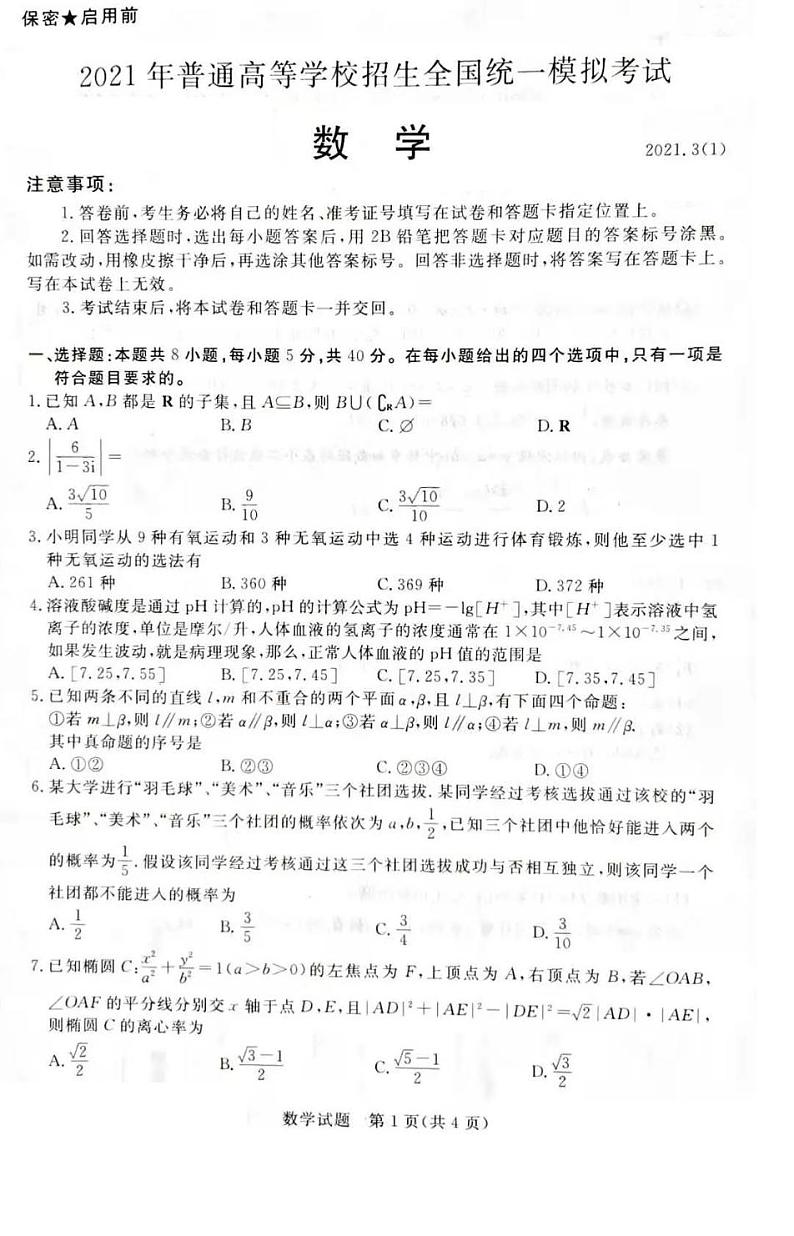 保密★启用前
2021 年普通高等学校招生全国统一模拟考试
数 学
2021.3(1)
注意事项:
1.答卷前,考生务必将自己的姓名、准考证号填写在试卷和答题卡指定位置上。
2.回答选择题时,选出每小题答案后,用 2B 铅笔把答题卡对应题目的答案标号涂黑。
如需改动,用橡皮擦干净后,再选涂其他答案标号。回答非选择题时,将答案写在答题卡上。
写在本试卷上无效。
3.考试结束后,将本试卷和答题卡一并交回。
一、选择题:本题共 8 小题,每小题 5 分,共 40 分。在每小题给出的四个选项中,只有一项是
符合题目要求的。
1.已知 A,B 都是 R 的子集,且 A⊆B,则 B∪(∁RA)=
A. A B. B C. ∅ D. R
2. |6/(1-3i)|=
A. 3√10/5 B. 9/10 C. 3√10/10 D. 2
3.小明同学从 9 种有氧运动和 3 种无氧运动中选 4 种运动进行体育锻炼,则他至少选中 1
种无氧运动的选法有
A. 261 种 B. 360 种 C. 369 种 D. 372 种
4.溶液酸碱度是通过 pH 计算的,pH 的计算公式为 pH=-lg[H⁺],其中[H⁺]表示溶液中氢
离子的浓度,单位是摩尔/升,人体血液的氢离子的浓度通常在 1×10⁻⁷·⁴⁵~1×10⁻⁷·³⁵之间,
如果发生波动,就是病理现象,那么,正常人体血液的 pH 值的范围是
A. [7.25,7.55] B. [7.25,7.45] C. [7.25,7.35] D. [7.35,7.45]
5.已知两条不同的直线 l,m 和不重合的两个平面 α,β,且 l⊥β,有下面四个命题:
①若 m⊥β,则 l∥m;②若 α∥β,则 l⊥α;③若 α⊥β,则 l∥α;④若 l⊥m,则 m∥β.
其中真命题的序号是
A. ①② B. ②③ C. ②③④ D. ①④
6.某大学进行“羽毛球”、“美术”、“音乐”三个社团选拔.某同学经过考核选拔通过该校的“羽
毛球”、“美术”、“音乐”三个社团的概率依次为 a,b,1/2,已知三个社团中他恰好能进入两个
的概率为1/5.假设该同学经过考核通过这三个社团选拔成功与否相互独立,则该同学一个
社团都不能进入的概率为
A. 1/2 B. 3/5 C. 3/4 D. 3/10
7.已知椭圆 C:x²/a²+y²/b²=1(a>b>0)的左焦点为 F,上顶点为 A,右顶点为 B,若∠OAB,
∠OAF 的平分线分别交 x 轴于点 D,E,且|AD|²+|AE|²-|DE|²=√2|AD|·|AE|,
则椭圆 C 的离心率为
A. √2/2 B. (√3-1)/2 C. (√5-1)/2 D. √3/2
数学试题 第 1 页(共 4 页)